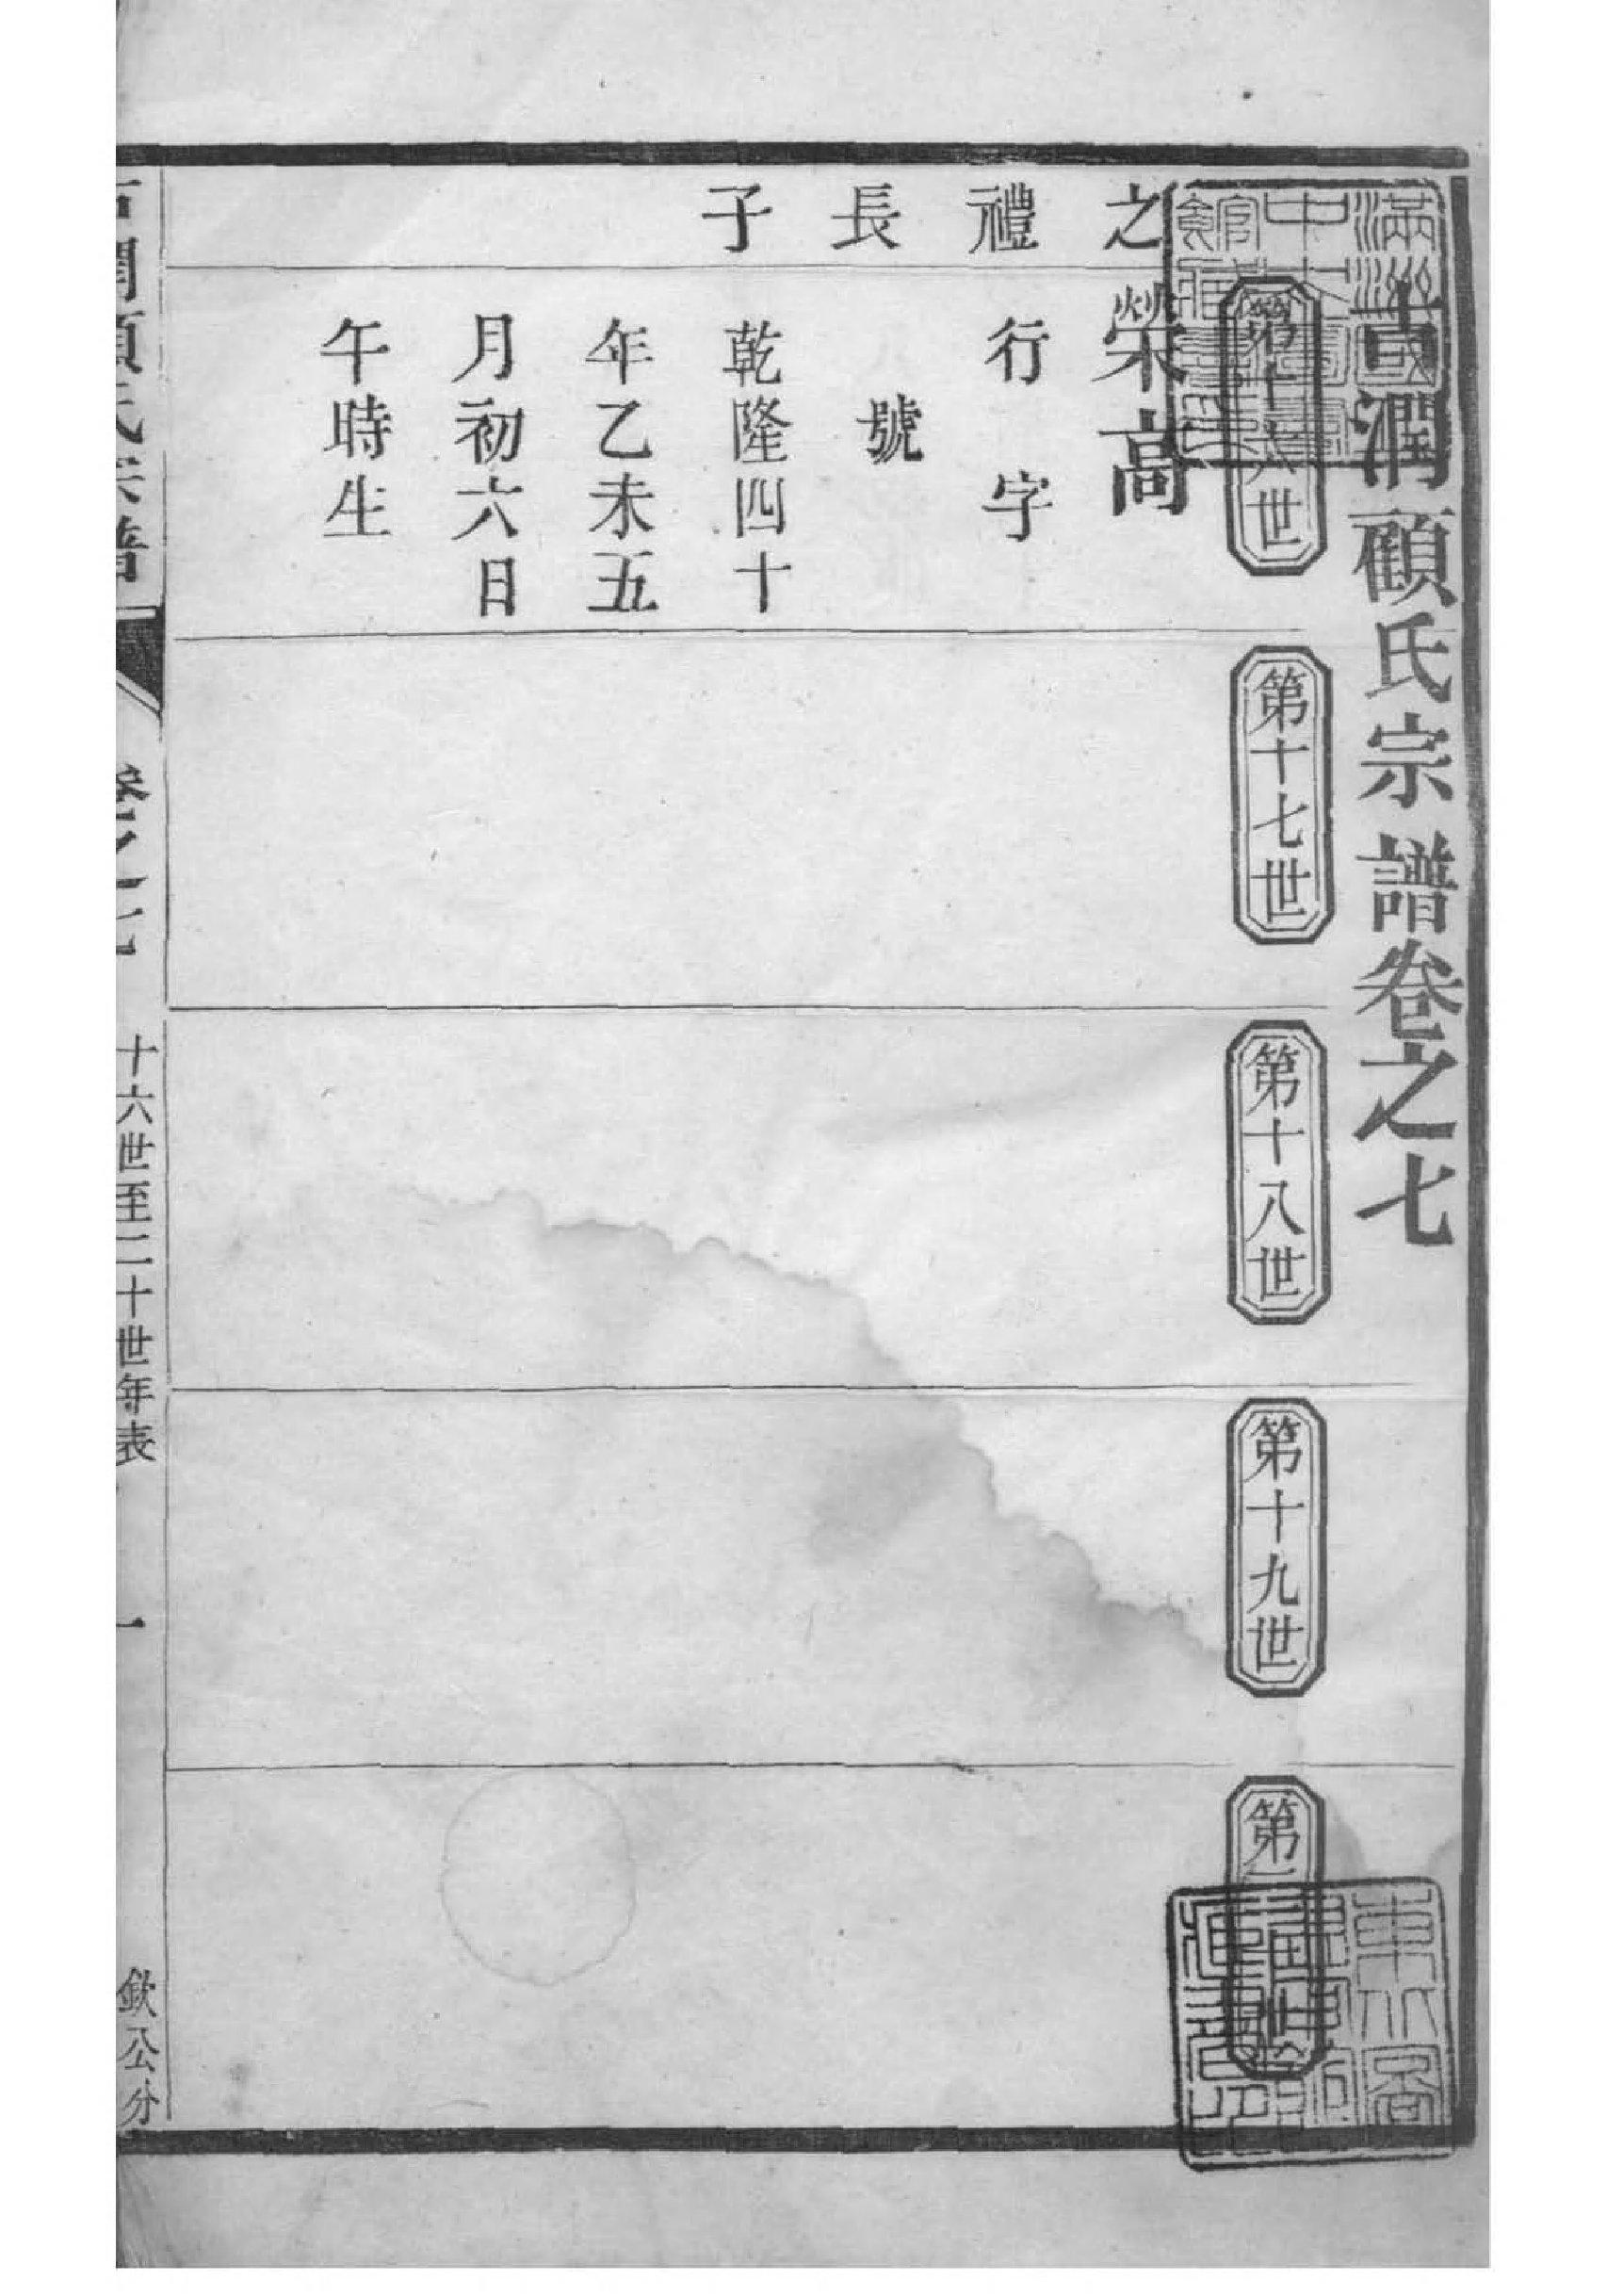 古潤顧氏宗譜卷之七
第十六世
第十七世
第十八世
第十九世
第二
之禮長子
榮高
行 字
號
乾隆四十
年乙未五
月初六日
午時生
古潤顧氏宗譜 卷之七 十六世至二十世年表 一 欽公分